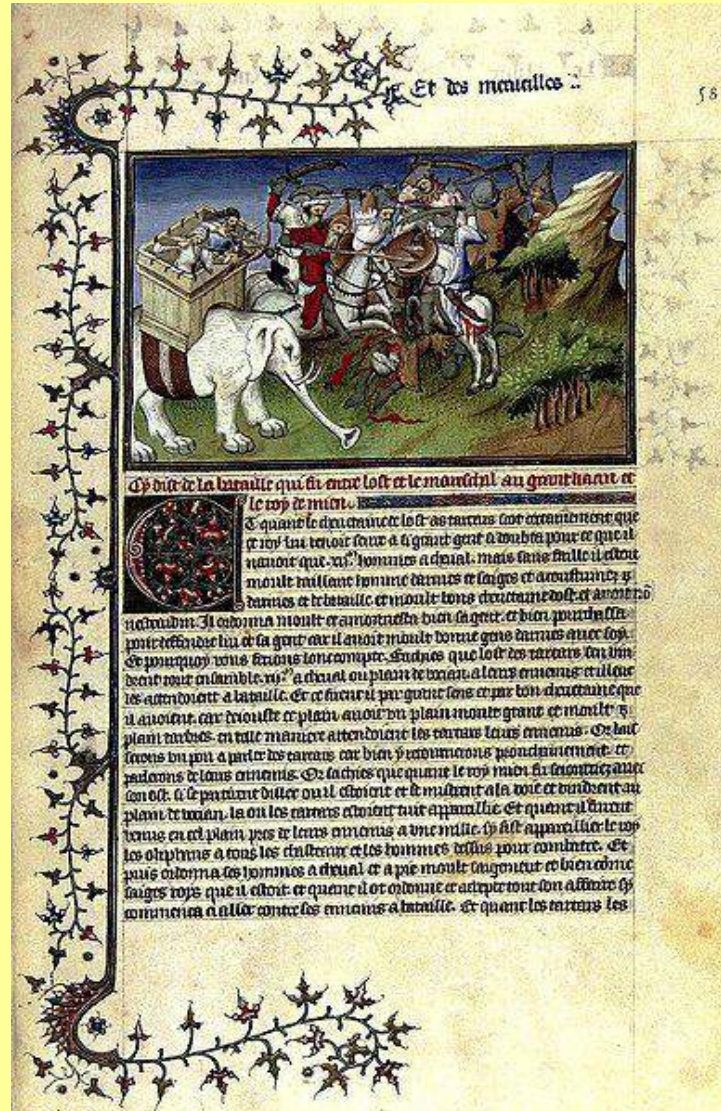 Et des merveilles
58
Cy dist de la bataille qui fu entre lost et le mareschal au grant kaan et
le roy de mien.
Et quant le chevetaine de lost as tartars sot certainement que
ce roy lui venoit seure a si grant gent a doubta pour ce que il
navoit que .xij. hommes a cheval. mais sans faille il estoit
moult vaillant homme darmes et saiges et acoustumez
darmes et de bataille et moult bons chevetaine dost. et avoit
nestradin. Il ordonna moult et amonnesta bien sa gent. et bien pourchassa
pour deffendre lui et sa gent car il avoit moult bonne gens darmes avec soy.
Et pourquoy vous feroie lonc compte. Sachies que lost des tartars sen vin
drent tout ensamble .xij. a cheval ou plain de vocian. a leurs ennemis et illeuc
les attendoient a bataille. Et ce firent il par grant sens et par bon chevetaine que
il avoient. car dejouste ce plain avoit un plain moult grant et moult
plain darbres. en telle maniere attendoient les tartars leurs ennemis. Or lais
serons un pou a parler des tartars car bien y retournerons prouchainement. et
parlerons de leurs ennemis. Or sachies que quant le roy mien fu avec
son ost. si se partirent dillec ou il estoient et se mistrent a la voie et vindrent au
plain de vocian. la ou les tartars estoient tuit appareillie. Et quant il furent
venus en cel plain pres de leurs ennemis a une mille. sy fist appareillier le roy
les oliphans a tous les chasteaux et les hommes dessus pour combatre. Et
puis ordonna ses hommes a cheval et a pie moult saigement et bien come
saiges roys que il estoit. et quant il ot ordonne et tout son affaire sy
commenca a aller contre ses ennemis a bataille. Et quant les tartars les